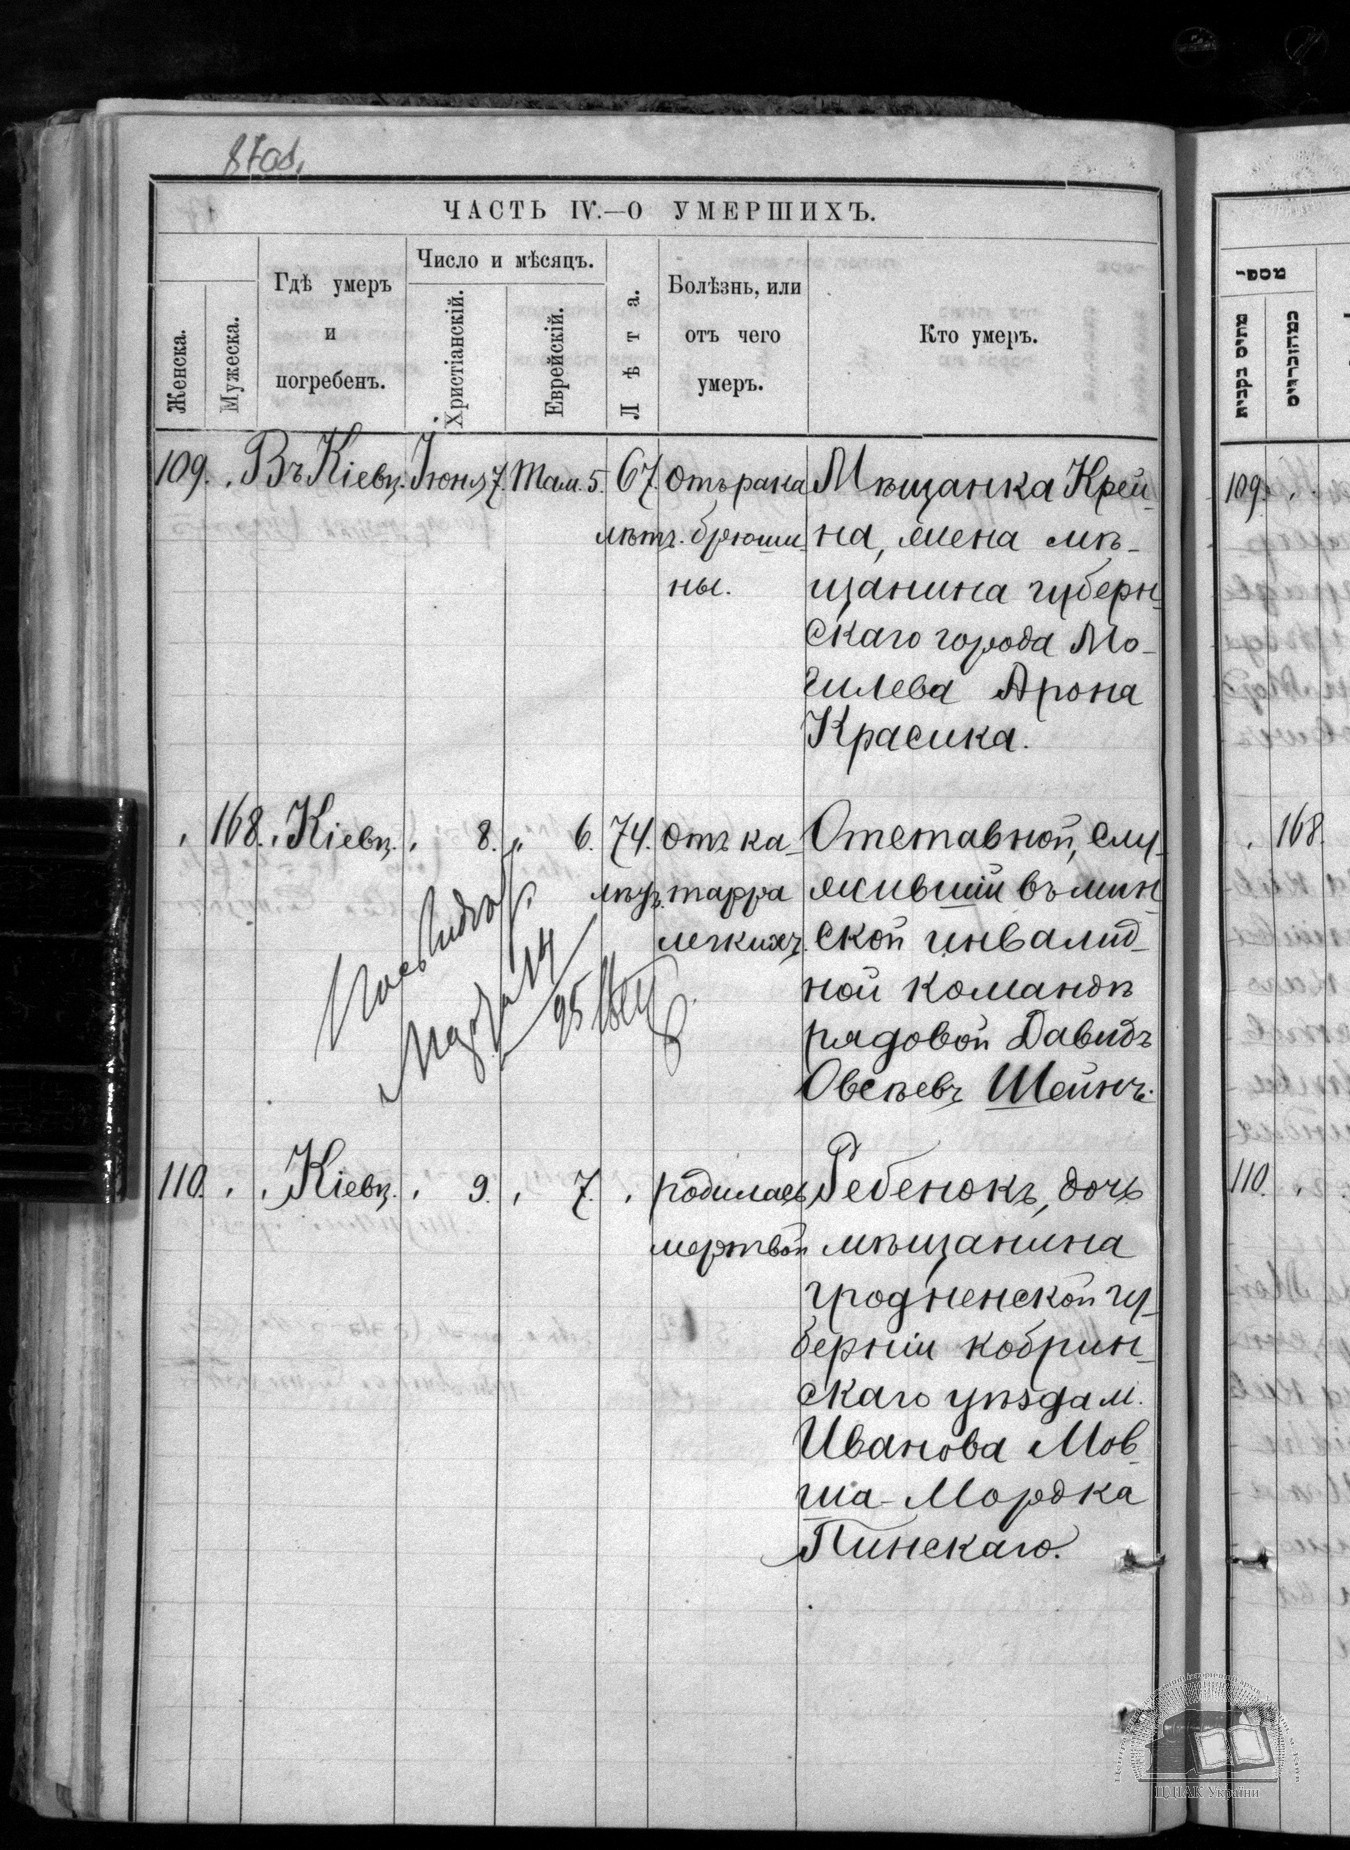 ЧАСТЬ IV.—О УМЕРШИХЪ.
Женска.
Мужеска.
Гдѣ умеръ
и
погребенъ.
Число и мѣсяцъ.
Христіанскій.
Еврейскій.
Лѣта.
Болѣзнь, или
отъ чего
умеръ.
Кто умеръ.
109. Въ Кіевѣ. Іюня 7. Там. 5. 67 Отъ рака Мѣщанка Крей-
лѣтъ. брюши- на, жена мѣ-
ны. щанина губерн-
скаго города Мо-
гилева Арона
Красика.
168. Кіевѣ. 8. 6. 74. Отъ ка- Отставной, слу-
тарра жившій въ мин-
легкихъ. ской инвалид-
ной командѣ
рядовой Давидъ
Овсѣевъ Шейнъ.
110. Кіевѣ. 9. 7. родилась Ребенокъ, дочь
мертвой мѣщанина
гродненской гу-
берніи кобрин-
скаго уѣзда м.
Иванова Мов-
ша-Мордка
Пинскаго.
מספר
מתים נקבות
109.
168.
110.
ЦДІАК України